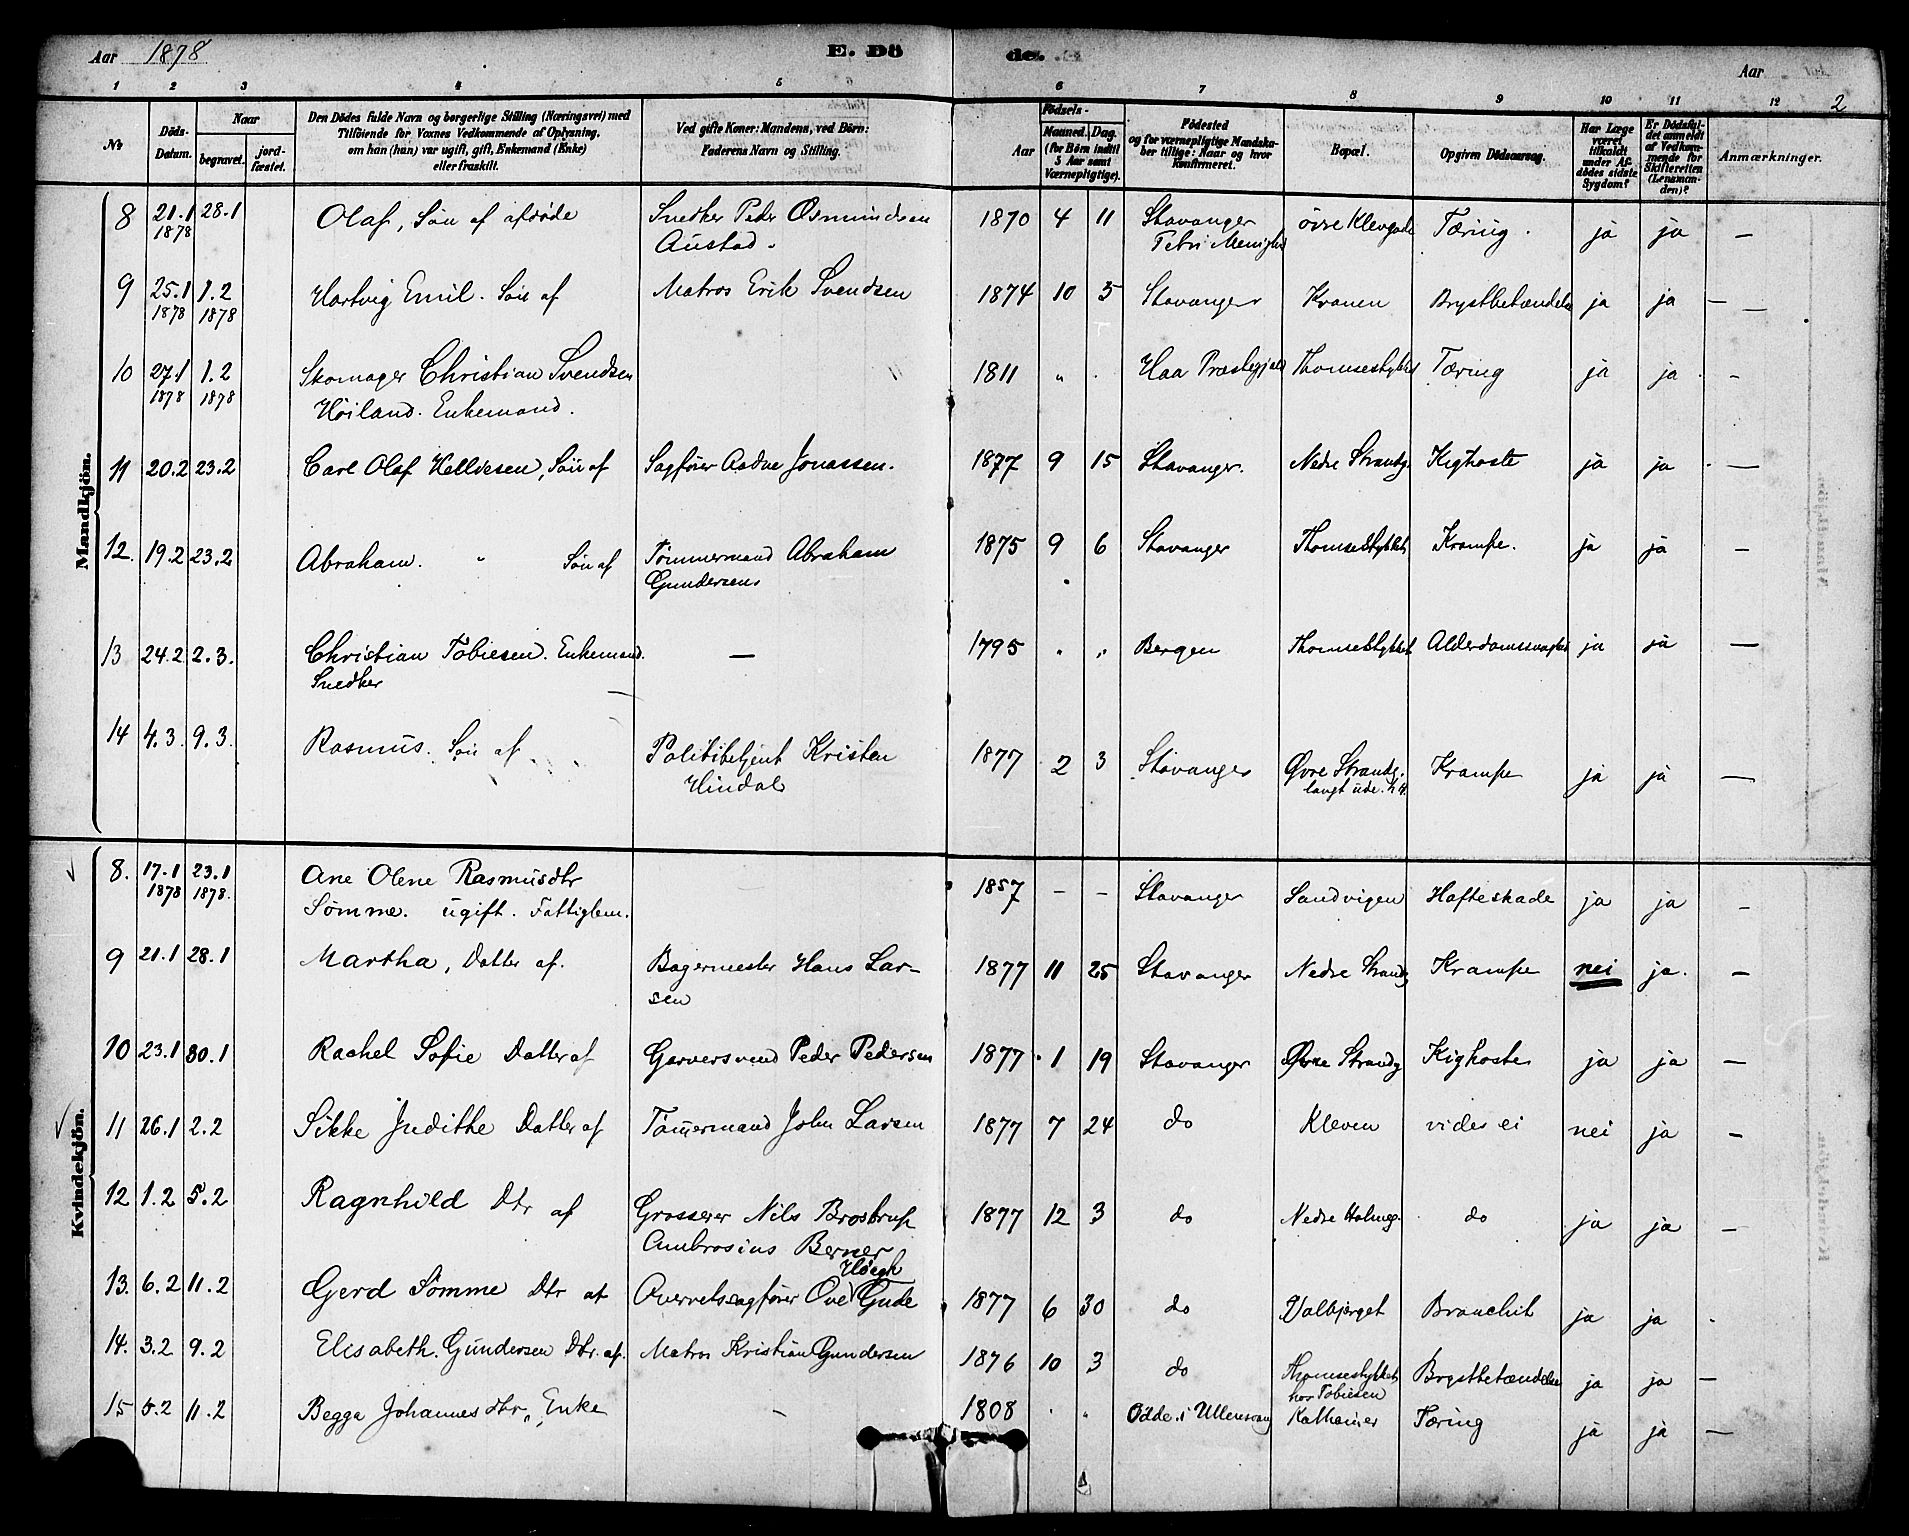 Aar 1878 E. Dö de. Aar
1 2 3 4 5 6 7 8 9 10 11 12 2
No Döds-Datum. Naar begravet. jordfæstet. Den Dödes fulde Navn og borgerlige Stilling (Næringsvei) med Tilföiende for Voxnes Vedkommende af Oplysning, om han (hun) var ugift, gift, Enkemand (Enke) eller fraskilt. Ved gifte Koner: Mandens, ved Börn: Faderens Navn og Stilling. Födsels- Aar Maaned. Dag. (for Börn indtil 5 Aar samt Værnepligtige). Födested og for værnepligtige Mandskaber tillige: Naar og hvor Konfirmeret. Bopæl. Opgiven Dödsaarsag. Har Læge været tilkaldt under Afdödes sidste Sygdom? Er Dödsfaldet anmeldt af Vedkommende for Skifteretten (Lensmanden)? Anmærkninger.
Mandkjön.
8 21.1 1878 28.1 Olaf, Søn af afdøde Snedker Peder Osmundsen Austad. 1870 4 11 Stavanger Petri Menighed øvre Klevgade Tæring. ja ja —
9 25.1 1878 1.2 1878 Hartvig Emil. Søn af Matros Erik Svendsen 1874 10 5 Stavanger Kranen Brystbetændelse ja ja —
10 27.1 1878 1.2 1878 Skomager Christian Svendsen Høiland. Enkemand. 1811 " . Haa Præstegjeld Thomsestykket Tæring ja ja. -
11 20.2 23.2 Carl Olaf Helliesen, Søn af Sagfører Aadne Jonassen. 1877 9 15 Stavanger. Nedre Strandg. Kighoste ja ja —
12. 19.2 23.2 Abraham. " Søn af Tømmermand Abraham Gundersens 1875 9 6 Stavanger Thomsestykket Krampe. ja ja —
13 24.2 2.3. Christian Tobiesen. Enkemand. Snedker — 1795 " " Bergen Thomsestykket Alderdomssvaghed ja ja —
14 4.3. 9.3. Rasmus. Søn af Politibetjent Kristen Hindal 1877 2 3 Stavanger Øvre Strandg. langt ude. Krampe ja ja —
Kvindekjön.
8. 17.1 1878 23.1 1878. Ane Olene Rasmusdtr Sømme. ugift. Fattiglem. 1857 — — Stavanger Sandvigen Hofteskade ja ja —
9 21.1 28.1 Martha, Datter af. Bagermester Hans Larsen 1877 11 25 Stavanger Nedre Strandg Krampe nei ja. —
10 23.1 30.1 Rachel Sofie Datter af Garversvend Peder Pedersen 1877 1 19 Stavanger Øvre Strandg Kighoste ja ja —
11 26.1 2.2 Sikke Judithe Datter af Tømermand John Larsen 1877 7 24 do Kleven vides ei nei ja —
12 1.2 5.2 Ragnhild Dtr af Grosserer Nils Brostrup Ambrosius Berner 1877 12 3 do Nedre Holmeg. do ja ja —
13. 6.2 11.2 Gerd Sømme Dtr af Overretssagfører Ove Høegh Gude 1877 6 30 do Valbjerget Bronchit ja ja .
14. 3.2 9.2 Elisabeth. Gundersen Dtr. af. Matros Kristian Gundersen 1876 10 3 do Thomsestykket hos Tobiesen Brystbetændelse ja ja —
15 5.2 11.2 Begga Johannesdtr., Enke — 1808 . " Odde i Ullensvang Tæring ja ja —